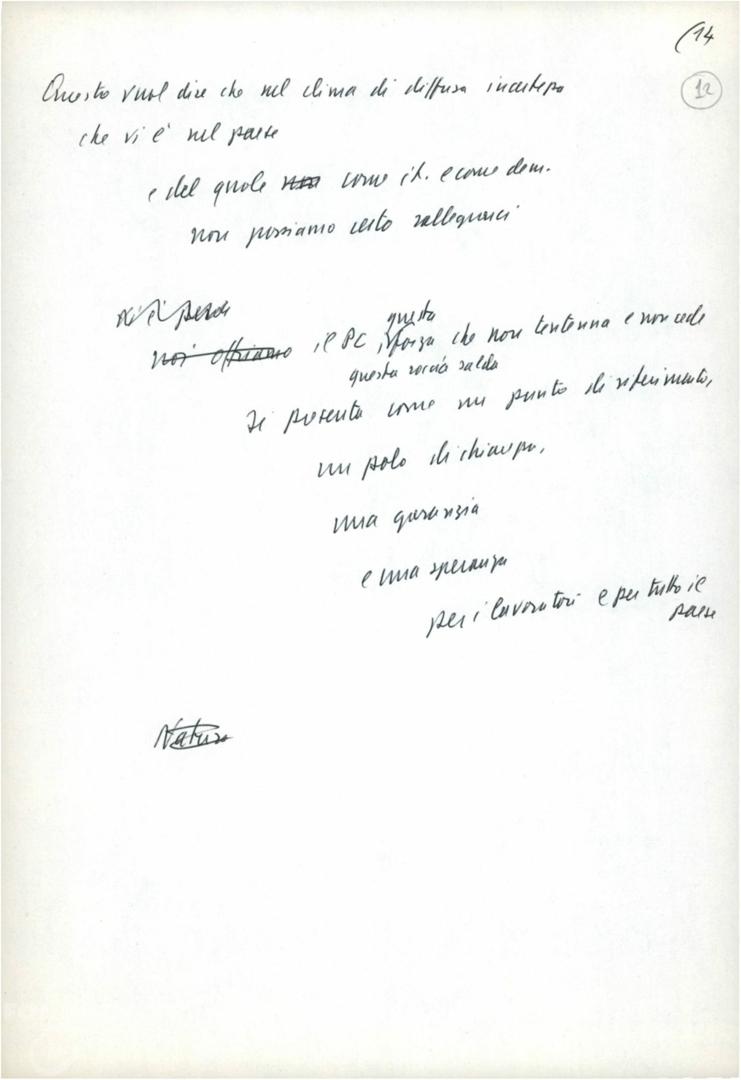 (14
12
Questo vuol dire che nel clima di diffusa incertezza
che vi è nel paese
e del quale non come it. e come dem.
non possiamo certo rallegrarci
noi offriamo il PC, questa forza che non tentenna e non cede
questa roccia salda
si presenta come un punto di riferimento,
un polo di chiarezza,
una garanzia
e una speranza
per i lavoratori e per tutto il
paese